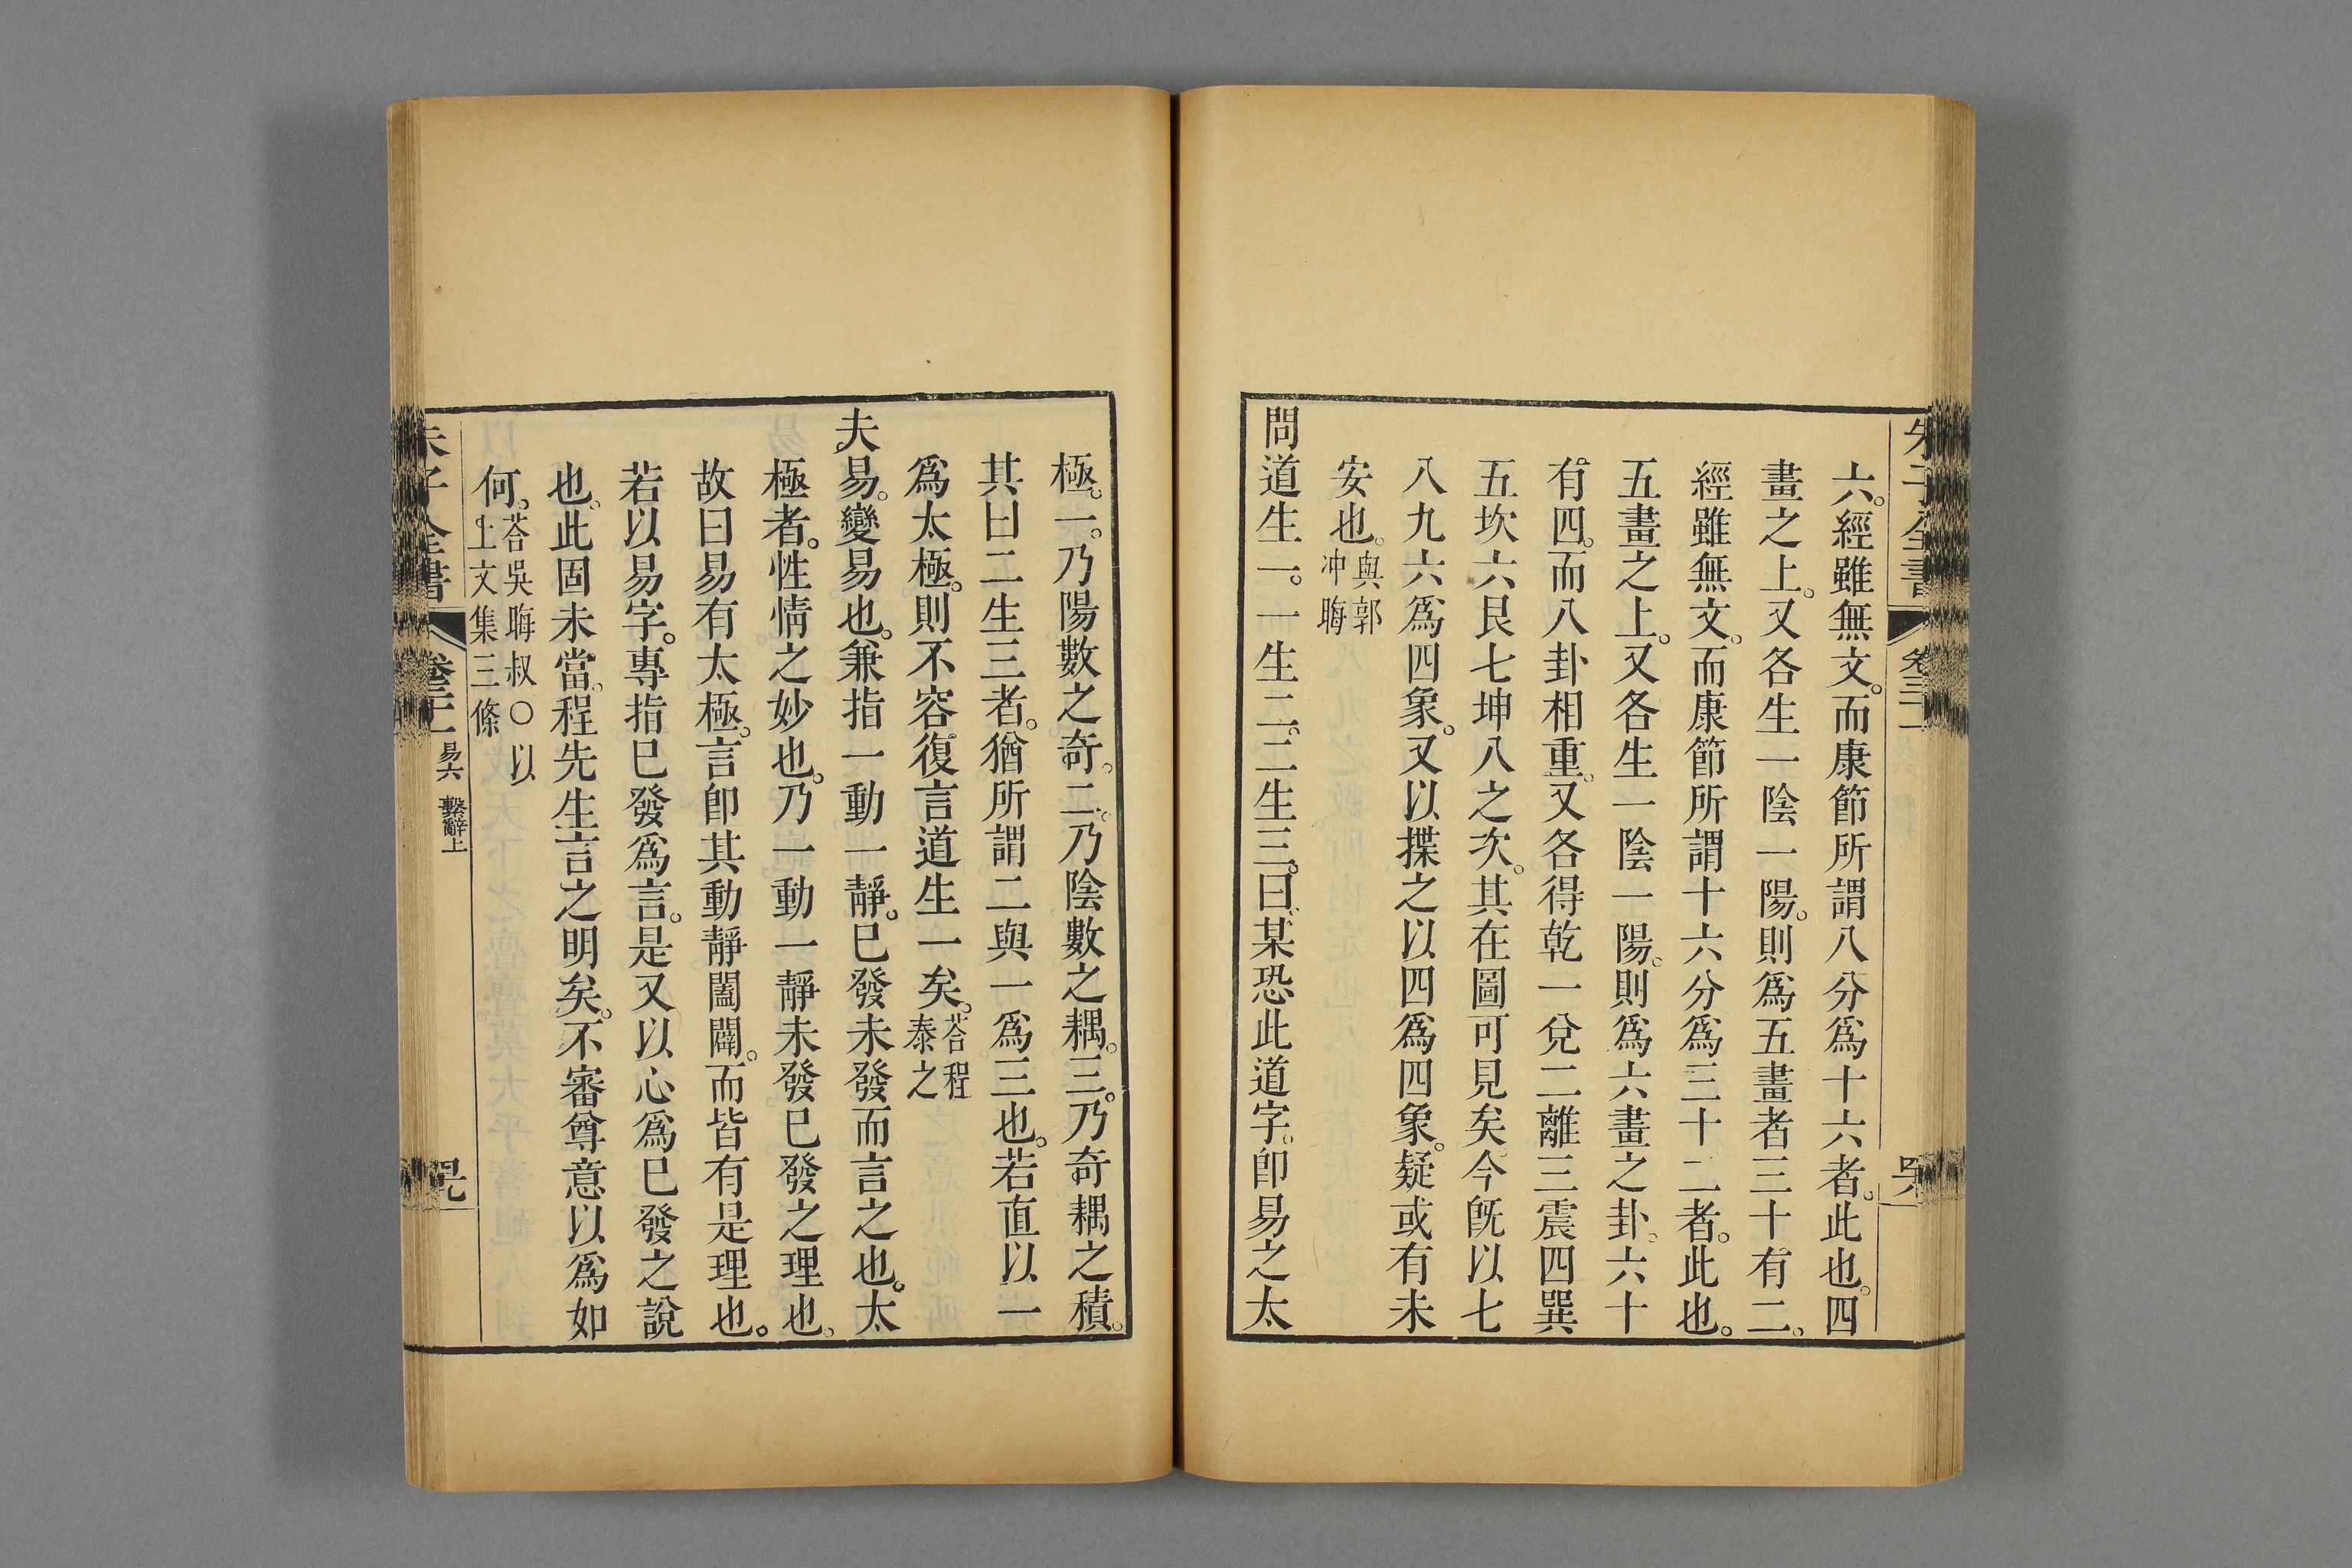 六。經雖無文。而康節所謂八分爲十六者。此也。四
畫之上。又各生一陰一陽。則爲五畫者三十有二。
經雖無文。而康節所謂十六分爲三十二者。此也。
五畫之上。又各生一陰一陽。則爲六畫之卦。六十
有四。而八卦相重。又各得乾一兌二離三震四巽
五坎六艮七坤八之次。其在圖可見矣。今旣以七
八九六爲四象。又以揲之以四爲四象。疑或有未
安也。與郭冲晦
問道生一。一生二。二生三。曰。某恐此道字。卽易之太
極。一。乃陽數之奇。二。乃陰數之耦。三。乃奇耦之積。
其曰二生三者。猶所謂二與一爲三也。若直以一
爲太極。則不容復言道生一矣。荅程泰之
夫易。變易也。兼指一動一靜。巳發未發而言之也。太
極者。性情之妙也。乃一動一靜未發巳發之理也。
故曰易有太極。言卽其動靜闔闢。而皆有是理也。
若以易字。專指巳發爲言。是又以心爲巳發之說
也。此固未當。程先生言之明矣。不審尊意以爲如
何。荅吳晦叔〇以上文集三條
朱子全書 易六 繫辭上